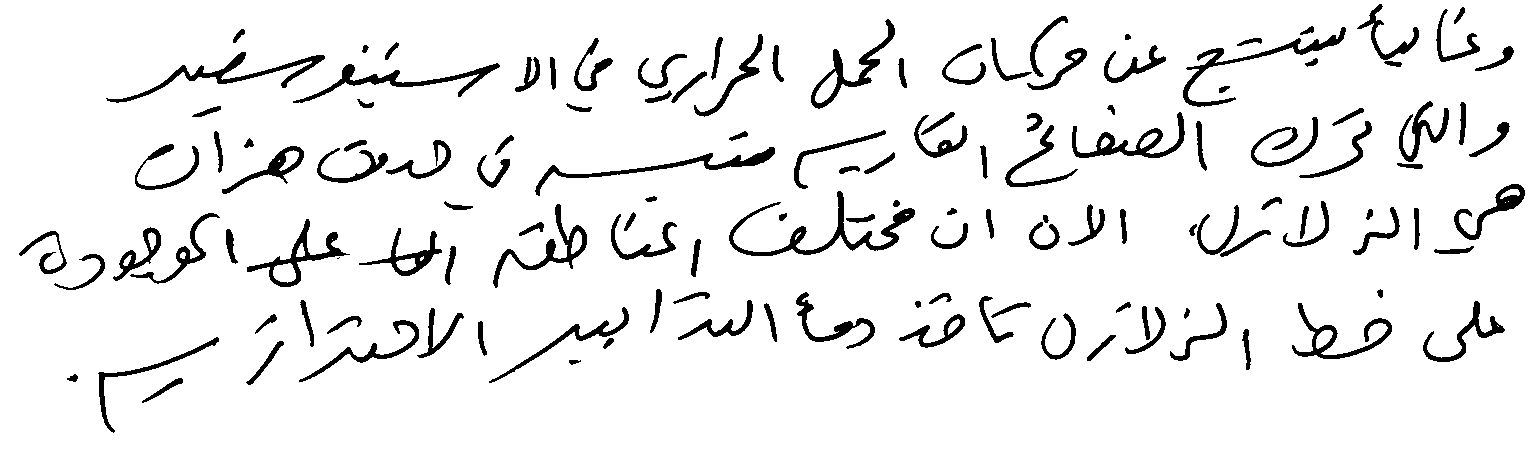 وغالباً ينتج عن حركات الحمل الحراري في الاستينوسفير
والتي تحرك الصفائح القارية متسببه في حدوث هزات
هي الزلازل. الان ان مختلف المناطق الموجودة
على خط الزلازل تاخذ دوماً التدابير الاحترازية.